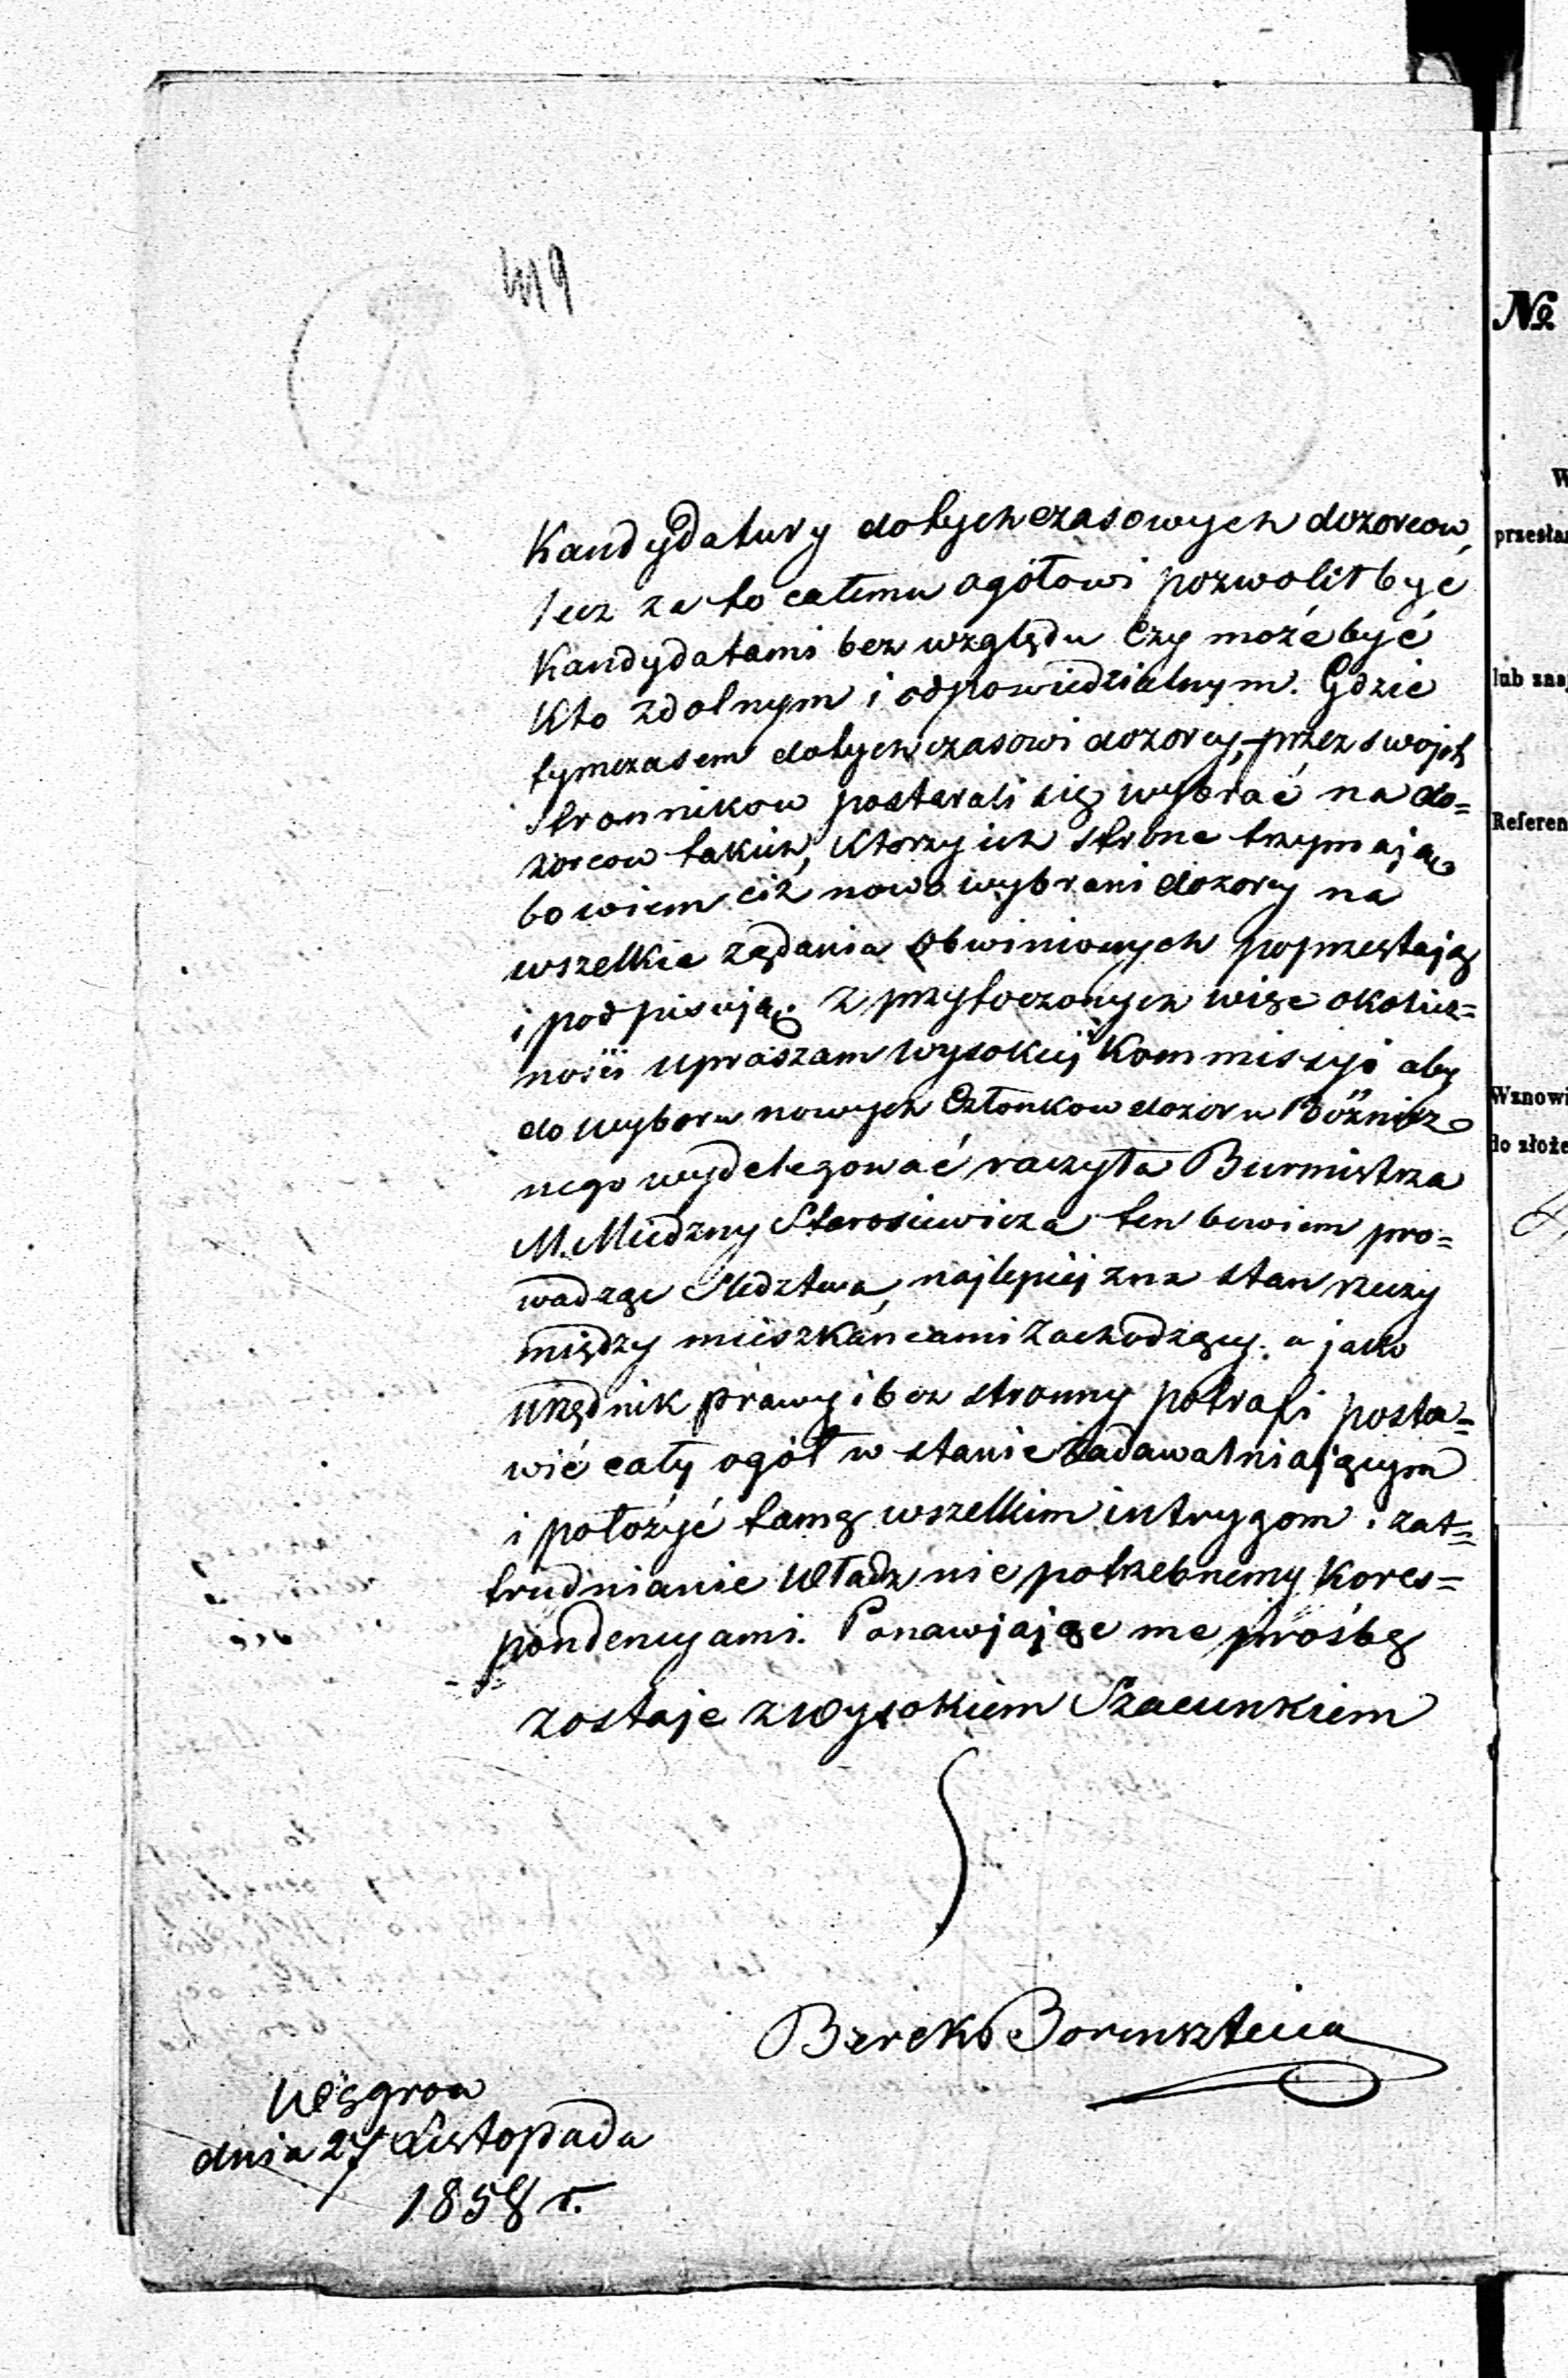 419
Kandydatury dotychczasowych dozorcow,
lecz za to całemu ogółowi pozwolił być
Kandydatami bez względu czy może być
Kto zdolnym i odpowiedzialnym. Gdzie
tymczasem dotychczasowi dozorcy, przez swojch
stronnikow postarali się wybrać na do=
zorcow takich, Ktorzy ich strone trzymają
bowiem ciż nowo wybrani dozorcy na
wszelkie ządania Obwinionych poprzestają
i podpisują. Z przytoczonych więc okolicz=
nosci upraszam Wysokiej Kommissyi aby
do wyboru nowych Członkow dozoru Bóżnicz
nego wydelegować raczyła Burmistrza
M. Miedzny Starosiewicza ten bowiem pro=
wadząc Sledztwa, najlepiej zna stan rzeczy
między mieszkańcami zachodzący. a jako
urzędnik prawy i bez stronny potrafi posta=
wić cały ogół w stanie zadawalniającym
i położyć tamę wszelkim intrygom i zat=
trudnianie Władz nie potrzebnemy Kores=
pondencyami. Ponawjając me prośbę
zostaje z Wysokiem Szacunkiem
Berek Borensztein
Węgrow
dnia 27 Listopada
1858 r.
№
W
przesła
lub zna
Referen
Wznowi
do złoże